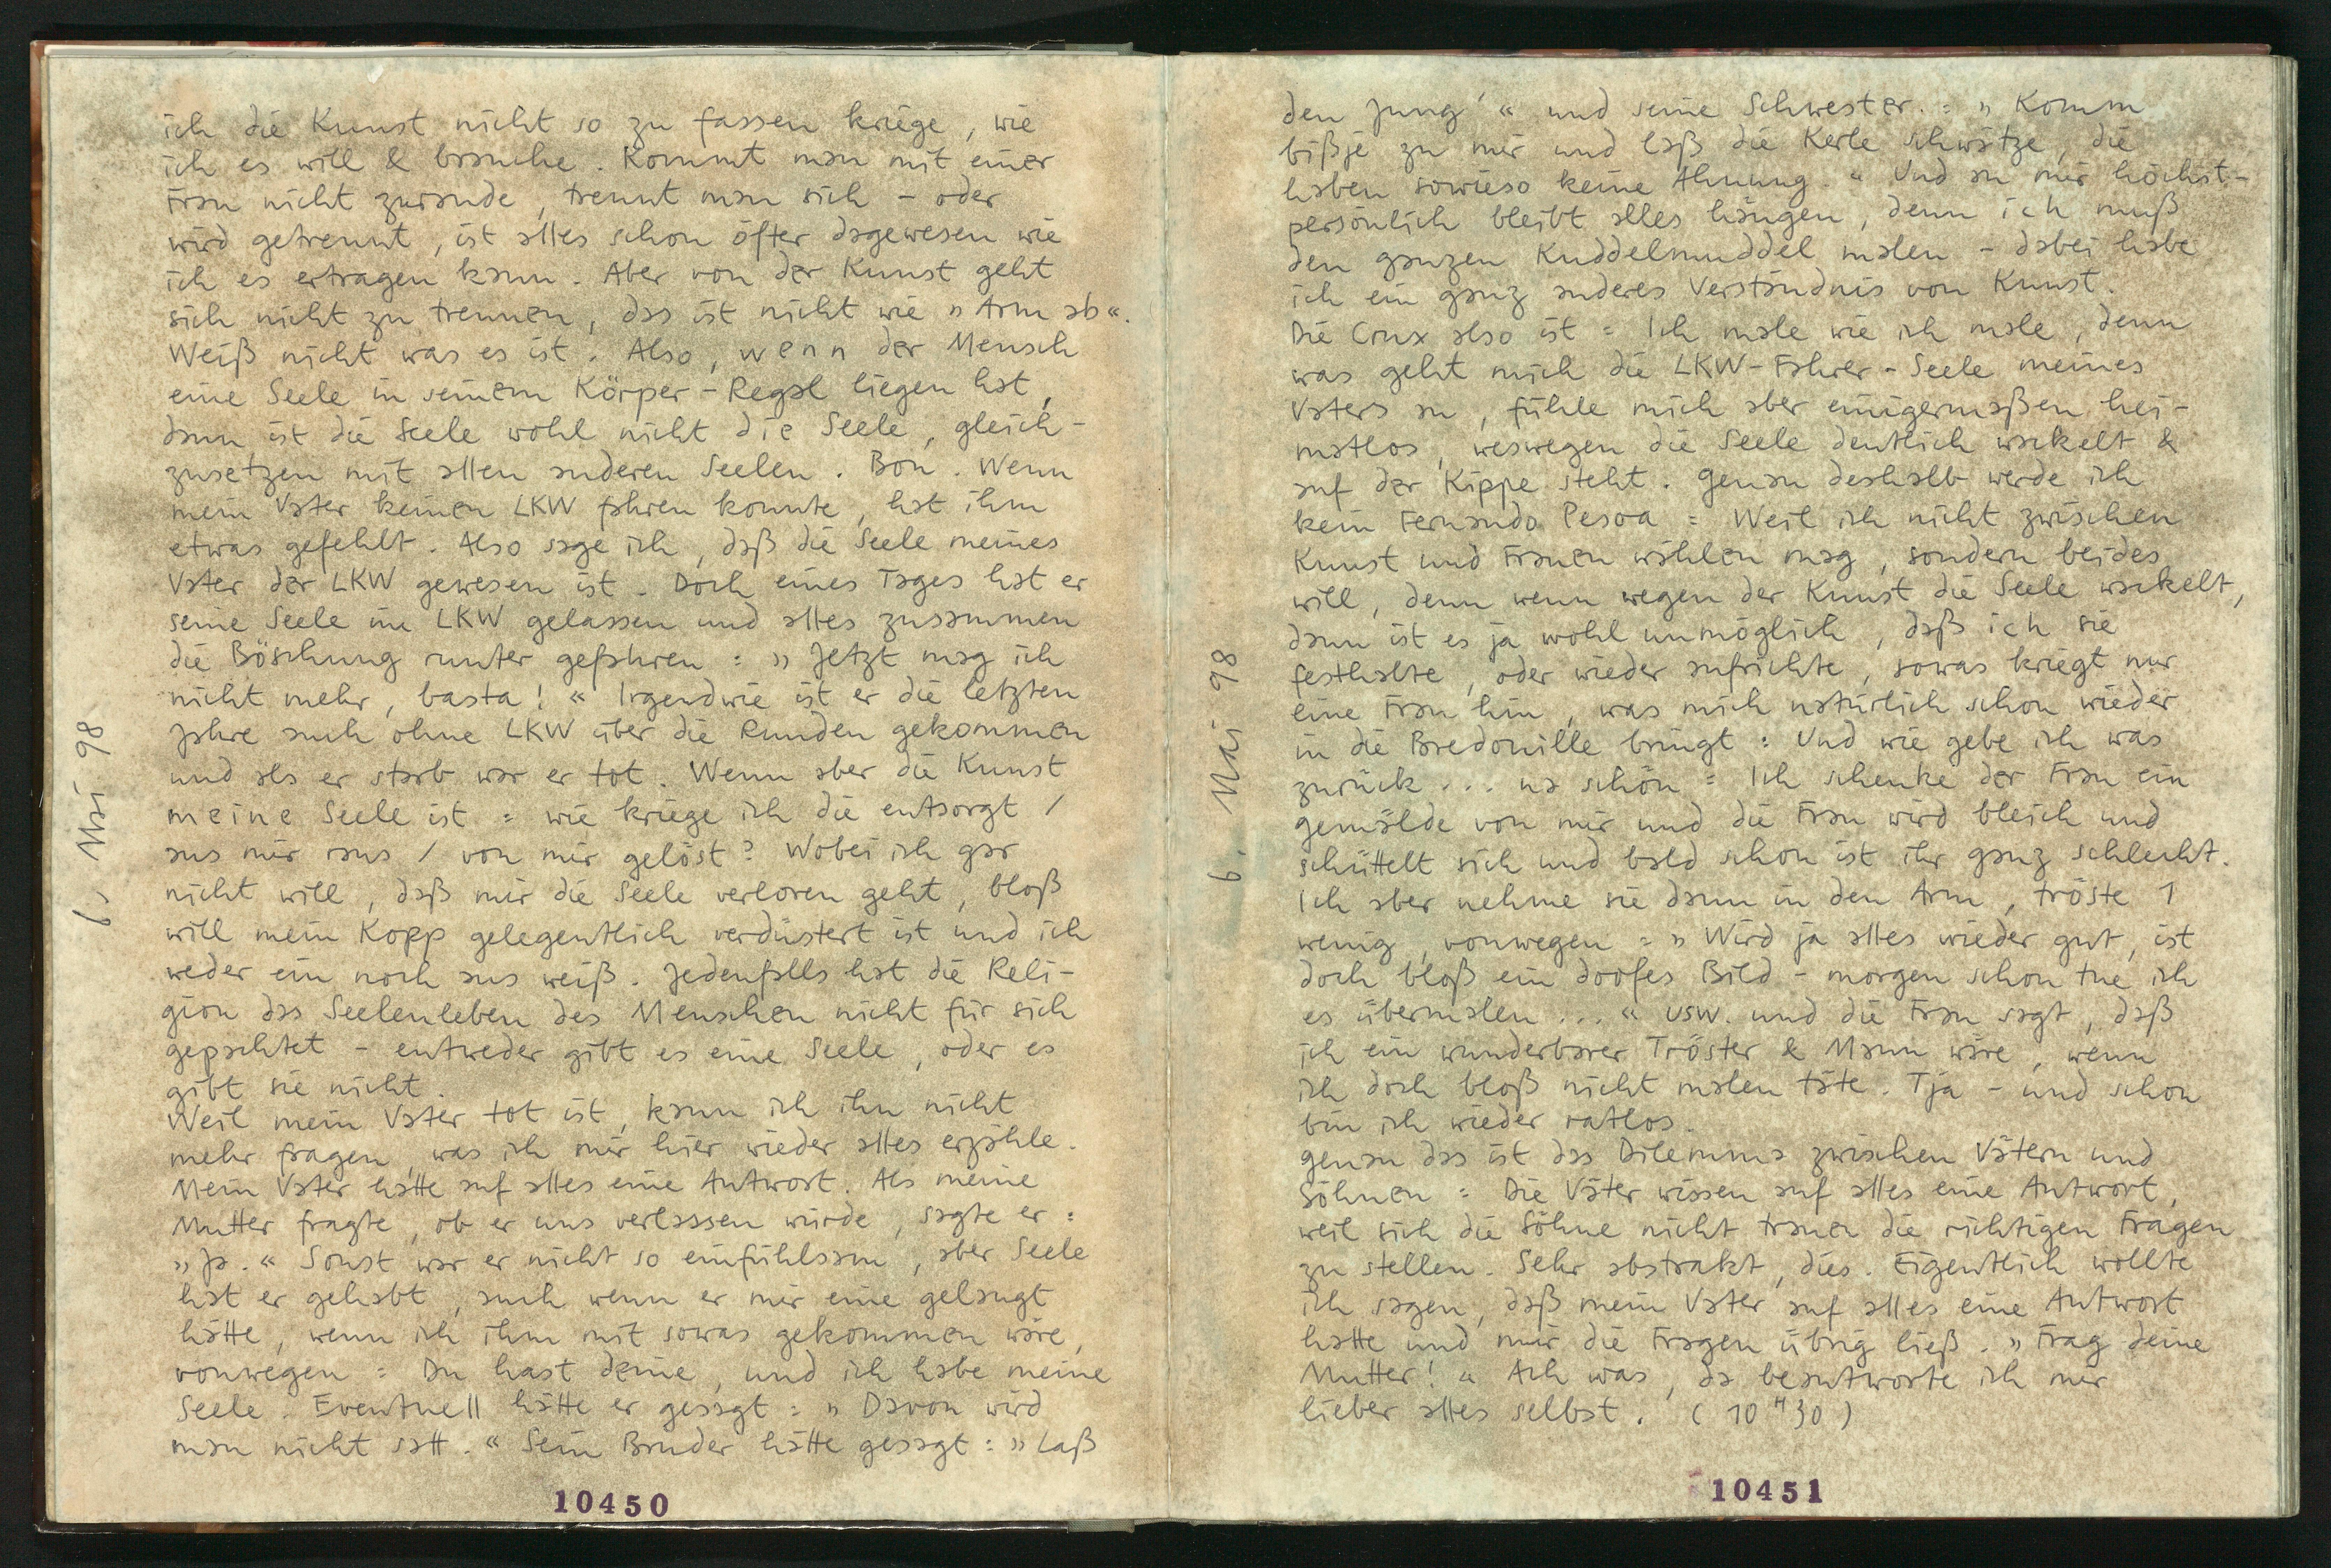 ich die Kunst nicht so zu fassen kriege, wie
ich es will & brauche. Kommt man mit einer
Frau nicht zurande, trennt man sich – oder
wird getrennt, ist alles schon öfter dagewesen wie
ich es ertragen kann. Aber von der Kunst geht
sich nicht zu trennen, das ist nicht wie »Arm ab«.
Weiß nicht was es ist. Also, wenn der Mensch
eine Seele in seinem Körper-Regal liegen hat,
dann ist die Seele wohl nicht die Seele, gleich-
zusetzen mit allen anderen Seelen. Bon. Wenn
mein Vater keinen LKW fahren konnte, hat ihm
etwas gefehlt. Also sage ich, daß die Seele meines
Vater der LKW gewesen ist. Doch eines Tages hat er
seine Seele im LKW gelassen und alles zusammen
die Böschung runter gefahren: »Jetzt mag ich
nicht mehr, basta!« Irgendwie ist er die letzten
Jahre auch ohne LKW über die Runden gekommen
und als er starb war er tot. Wenn aber die Kunst
meine Seele ist = wie kriege ich die entsorgt /
aus mir raus / von mir gelöst? Wobei ich gar
nicht will, daß mir die Seele verloren geht, bloß
will mein Kopp gelegentlich verdüstert ist und ich
weder ein noch aus weiß. Jedenfalls hat die Reli-
gion das Seelenleben des Menschen nicht für sich
gepachtet – entweder gibt es eine Seele, oder es
gibt sie nicht.
Weil mein Vater tot ist, kann ich ihn nicht
mehr fragen, was ich mir hier wieder alles erzähle.
Mein Vater hatte auf alles eine Antwort. Als meine
Mutter fragte, ob er uns verlassen würde, sagte er:
»Ja.« Sonst war er nicht so einfühlsam, aber Seele
hat er gehabt, auch wenn er mir eine gelangt
hätte, wenn ich ihm mit sowas gekommen wäre,
vonwegen = Du hast deine, und ich habe meine
Seele. Eventuell hätte er gesagt: »Davon wird
man nicht satt.« Sein Bruder hätte gesagt: »Laß
6. Mai 98
10450
den Jung'« und seine Schwester.: »Komm
bißje zu mir und laß die Kerle schwätze, die
haben sowieso keine Ahnung.« Und an mir höchst-
persönlich bleibt alles hängen, denn ich muß
den ganzen Kuddelmuddel malen – dabei habe
ich ein ganz anderes Verständnis von Kunst.
Die Crux also ist = Ich male wie ich male, denn
was geht mich die LKW-Fahrer-Seele meines
Vaters an, fühle mich aber einigermaßen hei-
matlos, weswegen die Seele deutlich wackelt &
auf der Kippe steht. Genau deshalb werde ich
kein Fernando Pesoa = Weil ich nicht zwischen
Kunst und Frauen wählen mag, sondern beides
will, denn wenn wegen der Kunst die Seele wackelt,
dann ist es ja wohl unmöglich, daß ich sie
festhalte, oder wieder aufrichte, sowas kriegt nur
eine Frau hin, was mich natürlich schon wieder
in die Bredouille bringt: Und wie gebe ich was
zurück... na schön = Ich schenke der Frau ein
Gemälde von mir und die Frau wird bleich und
schüttelt sich und bald schon ist ihr ganz schlecht.
Ich aber nehme sie dann in den Arm, tröste 1
wenig, vonwegen = »Wird ja alles wieder gut, ist
doch bloß ein doofes Bild – morgen schon tue ich
es übermalen...« usw. und die Frau sagt, daß
ich ein wunderbarer Tröster & Mann wäre, wenn
ich doch bloß nicht malen täte. Tja – und schon
bin ich wieder ratlos.
Genau das ist das Dilemma zwischen Vätern und
Söhnen = Die Väter wissen auf alles eine Antwort,
weil sich die Söhne nicht trauen die richtigen Fragen
zu stellen. Sehr abstrakt, dies. Eigentlich wollte
ich sagen, daß mein Vater auf alles eine Antwort
hatte und mir die Fragen übrig ließ. »Frag deine
Mutter!« Ach was, da beantworte ich mir
lieber alles selbst. (10 H 30)
6. Mai 98
10451